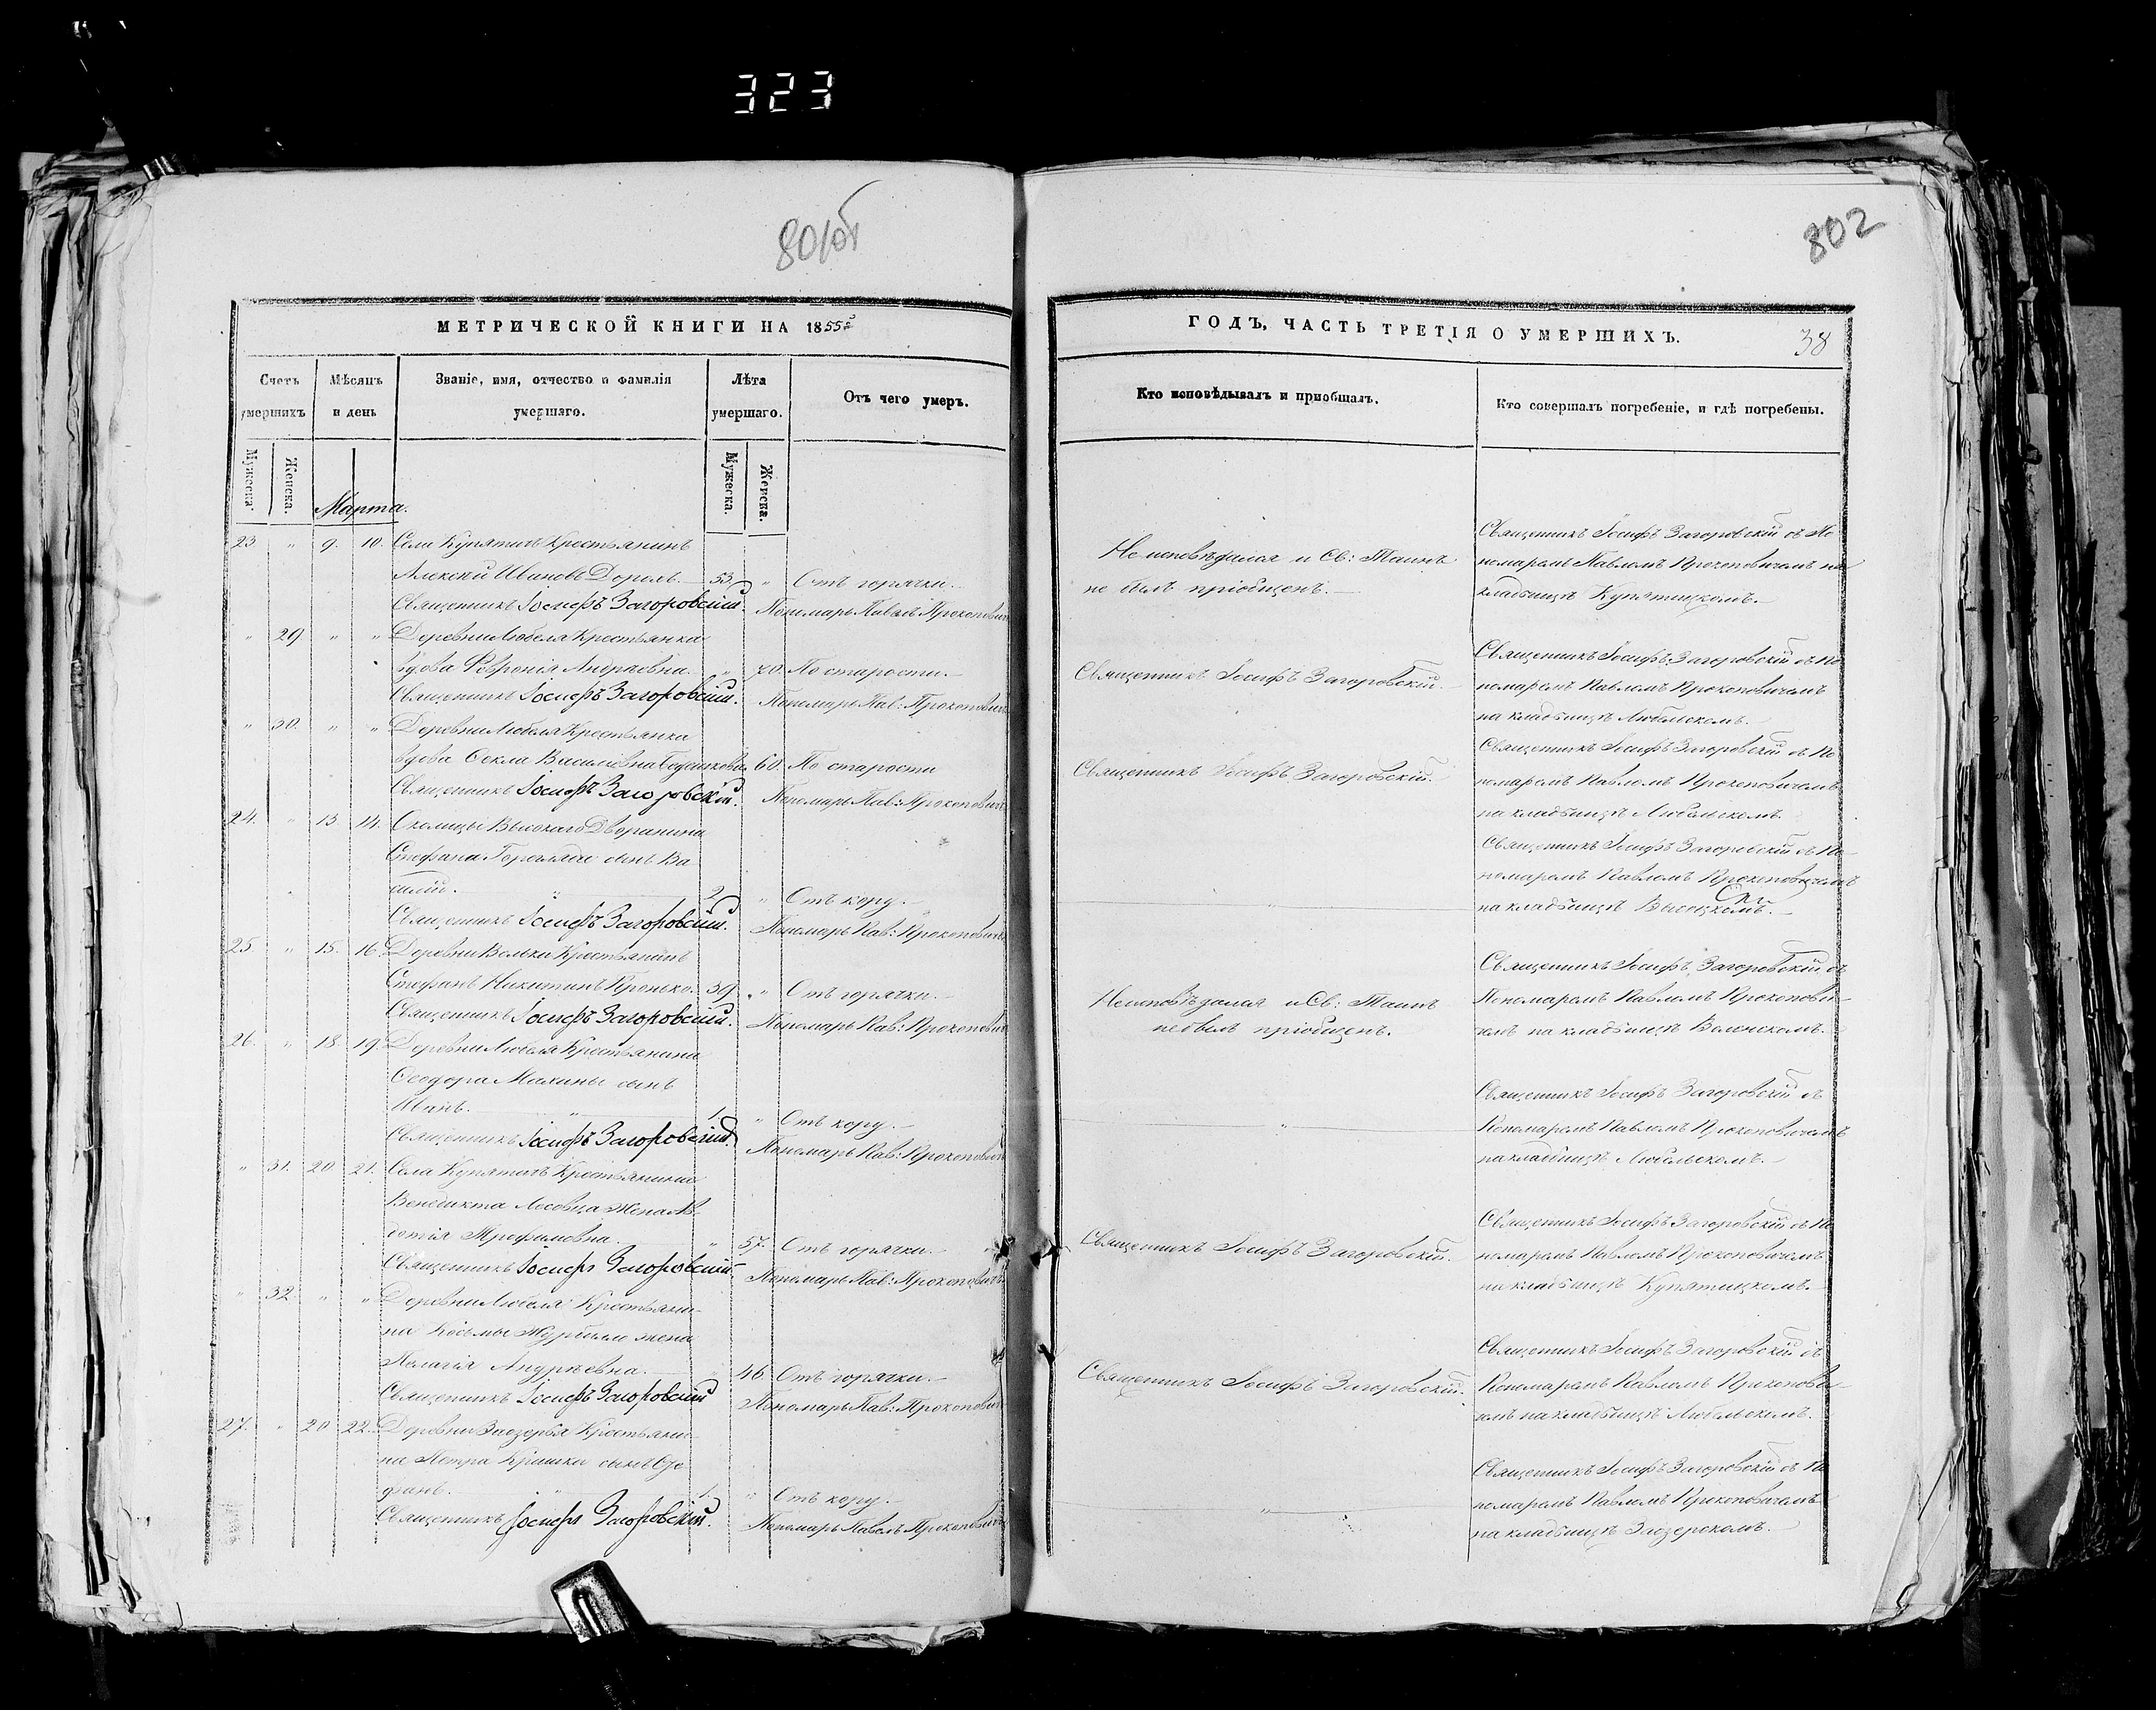 323
801об
802
МЕТРИЧЕСКОЙ КНИГИ НА 1855й
Счетъ умершихъ
Мѣсяцъ и день
Званіе, имя, отчество и фамилія умершаго.
Лѣта умершаго.
Отъ чего умеръ.
Мужеска.
Женска.
Марта.
Мужеска.
Женска.
23. " 9. 10. Села Купятичъ Крестьянинъ
Алексѣй Ивановъ 53. " Отъ горячки.
Священникъ Іосифъ Загоровскій. Пономарь Павелъ Прокоповичъ
" 29 " " Деревни Любеля Крестьянка
вдова Февронія Андреевна. " 70. По старости.
Священникъ Іосифъ Загоровскій. Пономарь Пав: Прокоповичъ
" 30. " " Деревни Любеля Крестьянка
вдова Ѳекла Василіевна 60. По старости
Священникъ Іосифъ Загоровскій. Пономарь Пав: Прокоповичъ
24. " 13. 14. Околицы Высокаго Дворянина
Стефана сынъ Ва
силій. " 2. " Отъ кору.
Священникъ Іосифъ Загоровскій. Пономарь Пав: Прокоповичъ
25. " 15. 16. Деревни Вольки Крестьянинъ
Стефанъ Никитинъ 39. " Отъ горячки.
Священникъ Іосифъ Загоровскій. Пономарь Пав: Прокоповичъ
26. " 18. 19. Деревни Любеля Крестьянина
Ѳеодора Махины сынъ
Иванъ. " 1. " Отъ кору.
Священникъ Іосифъ Загоровскій. Пономарь Пав: Прокоповичъ
" 31. 20. 21. Села Купятичъ Крестьянина
Венедикта Лесовца жена Ев-
докія Трофимовна. " 57. Отъ горячки.
Священникъ Іосифъ Загоровскій. Пономарь Пав: Прокоповичъ
" 32. " " Деревни Любеля Крестьяни-
на Косьмы жена
Пелагія Андреевна. " 46. Отъ горячки.
Священникъ Іосифъ Загоровскій Пономарь Пав: Прокоповичъ
27. " 20. 22. Деревни Заозерья Крестьяни-
на Петра сынъ Сте
фанъ. " 1. " Отъ кору.
Священникъ Іосифъ Загоровскій. Пономарь Павелъ Прокоповичъ
ГОДЪ, ЧАСТЬ ТРЕТІЯ О УМЕРШИХЪ.
38
Кто исповѣдывалъ и приобщалъ.
Кто совершалъ погребеніе, и гдѣ погребены.
Не исповѣдался и Св: Таинъ
не былъ пріобщенъ.
Священникъ Іосифъ Загоровскій съ По
номаремъ Павломъ Прокоповичемъ на
кладбищѣ Купятицкомъ.
Священникъ Іосифъ Загоровскій.
Священникъ Іосифъ Загоровскій съ По
номаремъ Павломъ Прокоповичемъ
на кладбищѣ Любельскомъ.
Священникъ Іосифъ Загоровскій.
Священникъ Іосифъ Загоровскій съ По
номаремъ Павломъ Прокоповичемъ
на кладбищѣ Любельскомъ.
"
Священникъ Іосифъ Загоровскій съ По
номаремъ Павломъ Прокоповичемъ
на кладбищѣ Высоцкомъ.
Неисповѣдался и Св: Таинъ
небылъ пріобщенъ.
Священникъ Іосифъ Загоровскій съ
Пономаремъ Павломъ Прокопови-
чемъ на кладбищѣ Воленскомъ.
"
Священникъ Іосифъ Загоровскій съ
Пономаремъ Павломъ Прокоповичемъ
на кладбищѣ Любельскомъ.
Священникъ Іосифъ Загоровскій.
Священникъ Іосифъ Загоровскій съ По
номаремъ Павломъ Прокоповичемъ
на кладбищѣ Купятицкомъ.
Священникъ Іосифъ Загоровскій.
Священникъ Іосифъ Загоровскій съ
Пономаремъ Павломъ Прокопови-
чемъ на кладбищѣ Любельскомъ.
"
Священникъ Іосифъ Загоровскій съ По
номаремъ Павломъ Прокоповичемъ
на кладбищѣ Заозерскомъ.